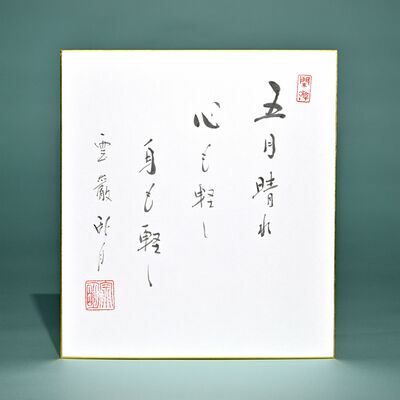 五月晴れ
心も軽し
身も軽し
雲巌